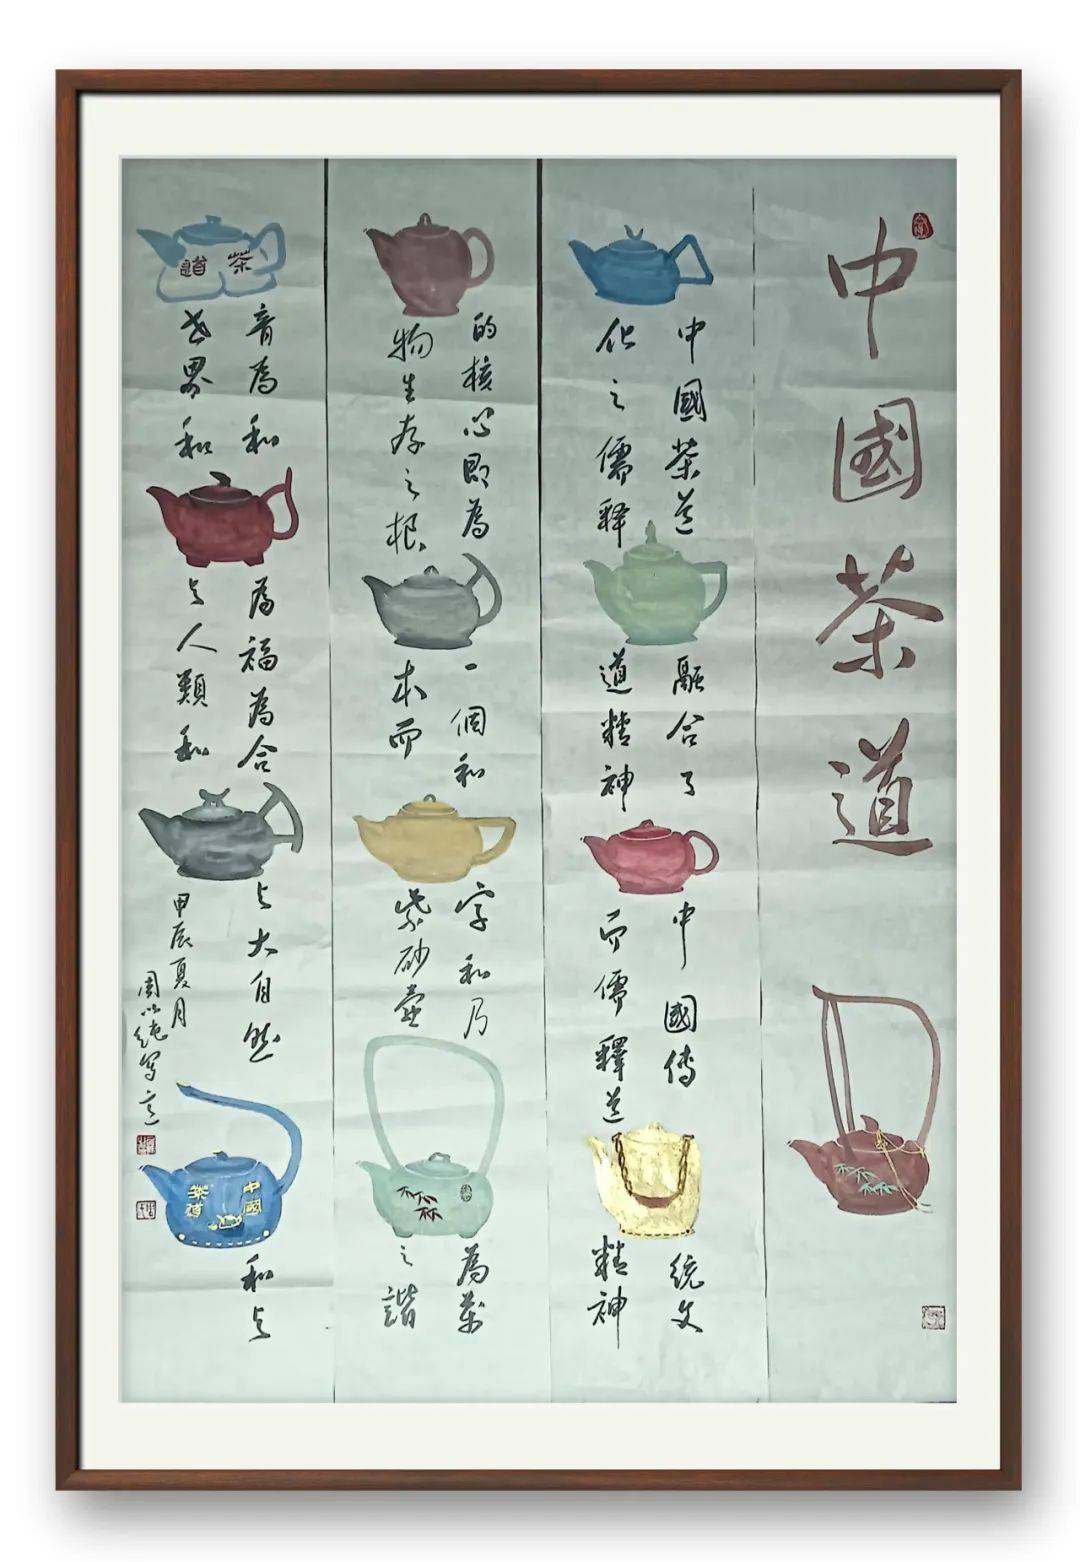 中國茶道
中國茶道融合了中國傳統文
化之儒释道精神而儒釋道精神
的核心即為一個和字和乃為萬
物生存之根本而紫砂壺之諧
音為和為福為合与大自然和与
世界和与人類和
甲辰夏月
周純写意
茶道
中國
茶道